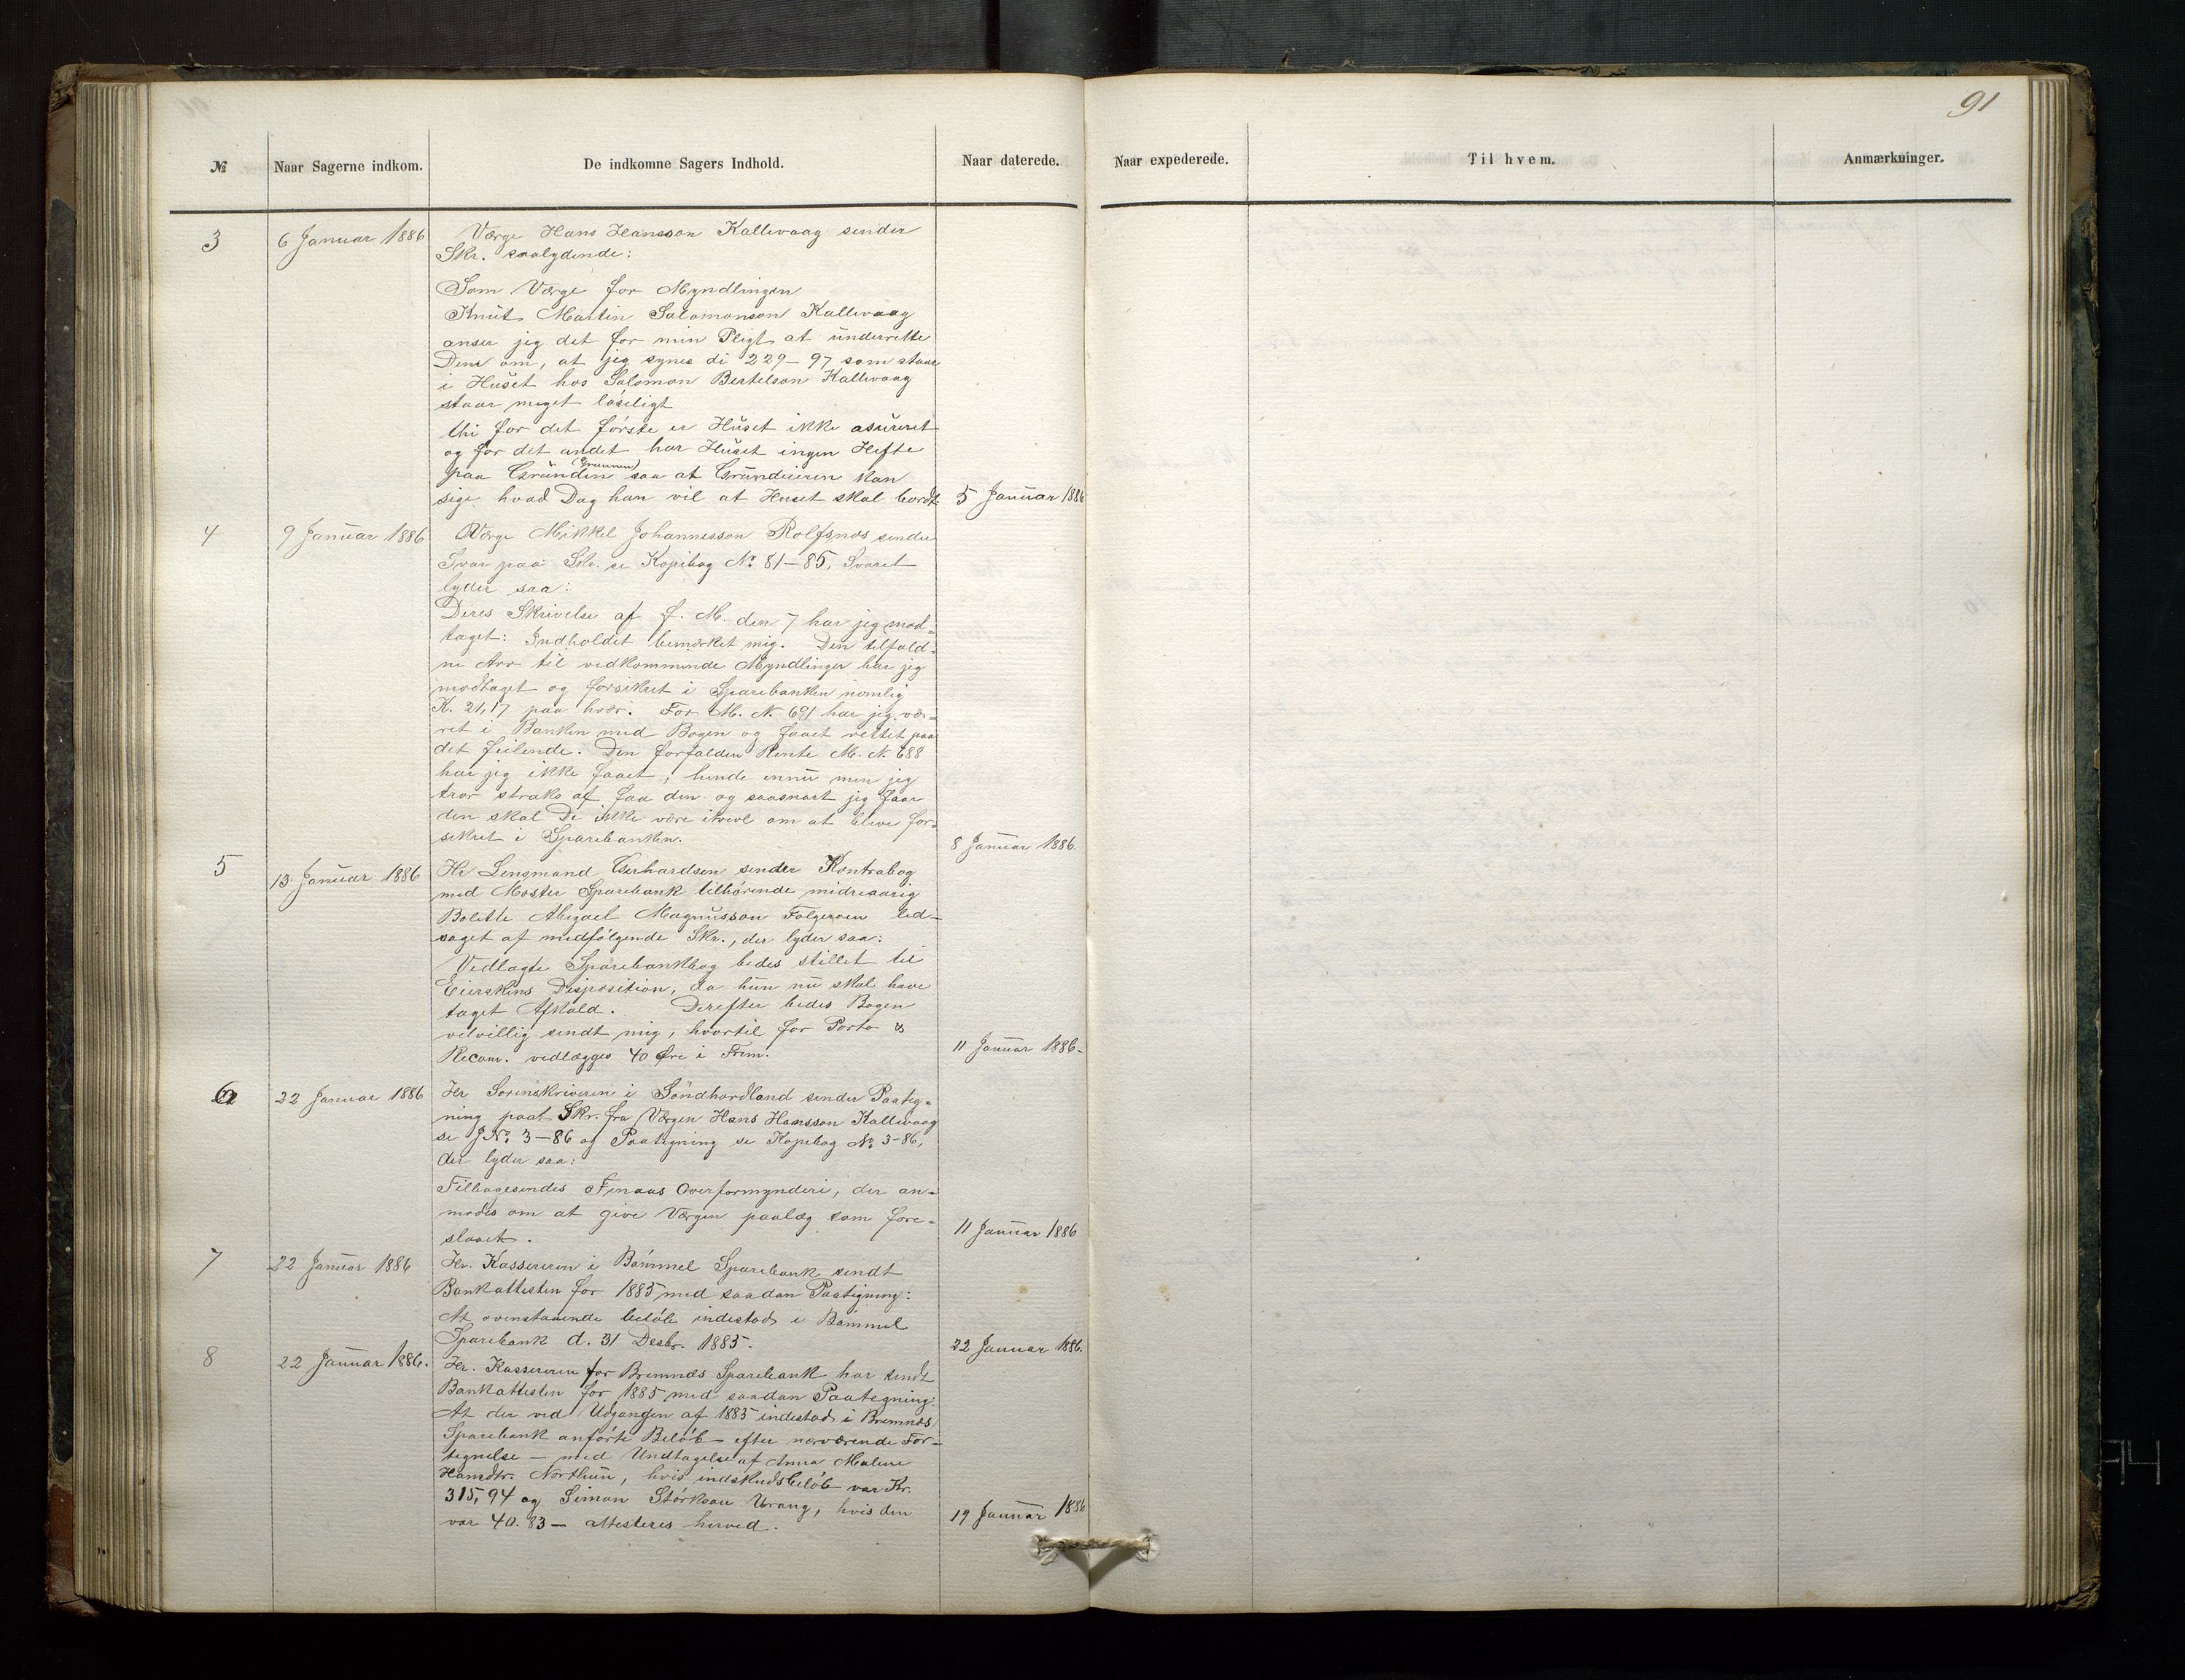 91
№ Naar Sagerne indkom. De indkomne Sagers Indhold. Naar daterede. Naar expederede. Til hvem. Anmærkninger.
3 6 Januar 1886 Værge Hans Hansson Kallevaag sender
Skr. saalydende:
Som Værge for Myndlingen
Knut Martin Salomonson Kallevaag
anser jeg det for min Pligt at underrette
Dem om, at jeg synes di 229-97 som staar
i Huset hos Salomon Bertelson Kallevaag
staar meget løseligt
thi for det første er Huset ikke asureret
og for det andet har Huset ingen Hefte
paa Grunden (Grunnen) saa at Grundeieren kan
sige hvad Dag han vil at Huset skal bordt 5 Januar 1886
4 9 Januar 1886 Værge Mikkel Johannesson Rolfsnæs sender
Svar paa Skr. se Kopibog No 81-85, Svaret
lyder saa:
Deres Skrivelse af f. M. den 7 har jeg mod=
taget: Indholdet bemærket mig. Den tilfald=
ne Arv til vedkommende Myndlinger har jeg
modtaget og forsikret i Sparebanken nemlig
K. 21,17 paa hver. For M. N. 691 har jeg væ=
ret i Banken med Bogen og faaet rettet paa
det feilende. Den forfalden Rente M. N. 688
har jeg ikke faaet, hende ennu men jeg
tror straks at faa den og saasnart jeg faar
den skal De ikke være itvivl om at blive for=
sikret i Sparebanken. 8 Januar 1886.
5 13 Januar 1886 Hr Lensmand Gerhardsen sender Kontrabog
med Moster Sparebank tilhørende midreaarig
Bolette Abigael Magnusson Folgerøen led-
saget af medfølgende Skr., der lyder saa:
Vedlagte Sparebankbog bedes stillet til
Eierskens Disposition, da hun nu skal have
taget Afkald. Derefter bedes Bogen
velvillig sendt mig, hvortil for Porto &
Recom. vedlægges 40 Øre i Frim. 11 Januar 1886-
6 22 Januar 1886 Hr Sorenskriveren i Søndhordland sender Paateg=
ning paat Skr. fra Værgen Hans Hansson Kallevaag
se J No 3-86 og Paategning se Kopibog No 3-86,
der lyder saa:
Tilbagesendes Finaas Overformynderi, der an=
modes om at give Værgen paalæg som fore=
slaaet. 11 Januar 1886
7 22 Januar 1886 Hr. Kassereren i Bømmel Sparebank sendt
Bankattesten for 1885 med saadan Paategning:
At ovenstaaende beløb indestod i Bømmel
Sparebank d. 31 Desbr. 1885. 22 Januar 1886.
8 22 Januar 1886. Hr. Kassereren for Bremnæs Sparebank har sendt
Bankattesten for 1885 med saadan Paategning:
At der ved Udgangen af 1885 indestod i Bremnæs
Sparebank anførte Beløb efter nærværende For-
tegnelse - med Undtagelse af Anna Malene
Hansdtr. Northun, hvis indskudsbeløb var Kr.
315,94 og Simon Størkson Urang, hvis den
var 40.83 - attesteres herved. 19 Januar 1886